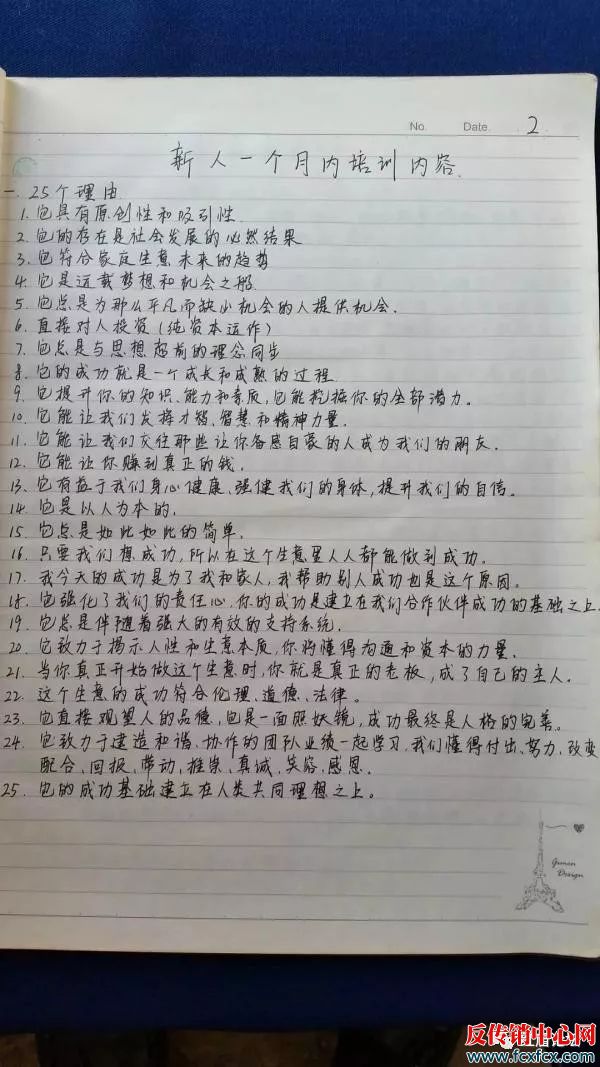 No.
Date.
2
新人一个月内培训内容.
一. 25个理由
1. 它具有原创性和吸引性.
2. 它的存在是社会发展的必然结果
3. 它符合家庭生意未来的趋势
4. 它是运载梦想和机会之船
5. 它总是为那么平凡而缺少机会的人提供机会.
6. 直接对人投资(纯资本运作)
7. 它总是与思想超前的理念同步
8. 它的成功就是一个成长和成熟的过程.
9. 它提升你的知识、能力和素质,它能挖掘你的全部潜力。
10. 它能让我们发挥才智、智慧和精神力量.
11. 它能让我们交往那些让你备感自豪的人成为我们的朋友.
12. 它能让你赚到真正的钱.
13. 它有益于我们身心健康、强健我们的身体,提升我们的自信。
14. 它是以人为本的.
15. 它总是如此如此的简单.
16. 只要我们想成功,所以在这个生意里人人都能做到成功。
17. 我今天的成功是为了我和家人,我帮助别人成功也是这个原因。
18. 它强化了我们的责任心.你的成功是建立在我们合作伙伴成功的基础之上.
19. 它总是伴随着强大的有效的支持系统.
20. 它致力于揭示人性和生意本质,你将懂得沟通和资本的力量.
21. 当你真正开始做这个生意时,你就是真正的老板,成了自己的主人.
22. 这个生意的成功符合伦理、道德、法律。
23. 它直接观望人的品德,也是一面照妖镜,成功最终是人格的完善。
24. 它致力于建造和谐、协作的团队业绩一起学习,我们懂得付出、努力、改变
配合、回报、带动、推崇、真诚、笑容、感恩.
25. 它的成功基础建立在人类共同理想之上。
Design
反传销中心网
www.fcxfcx.com